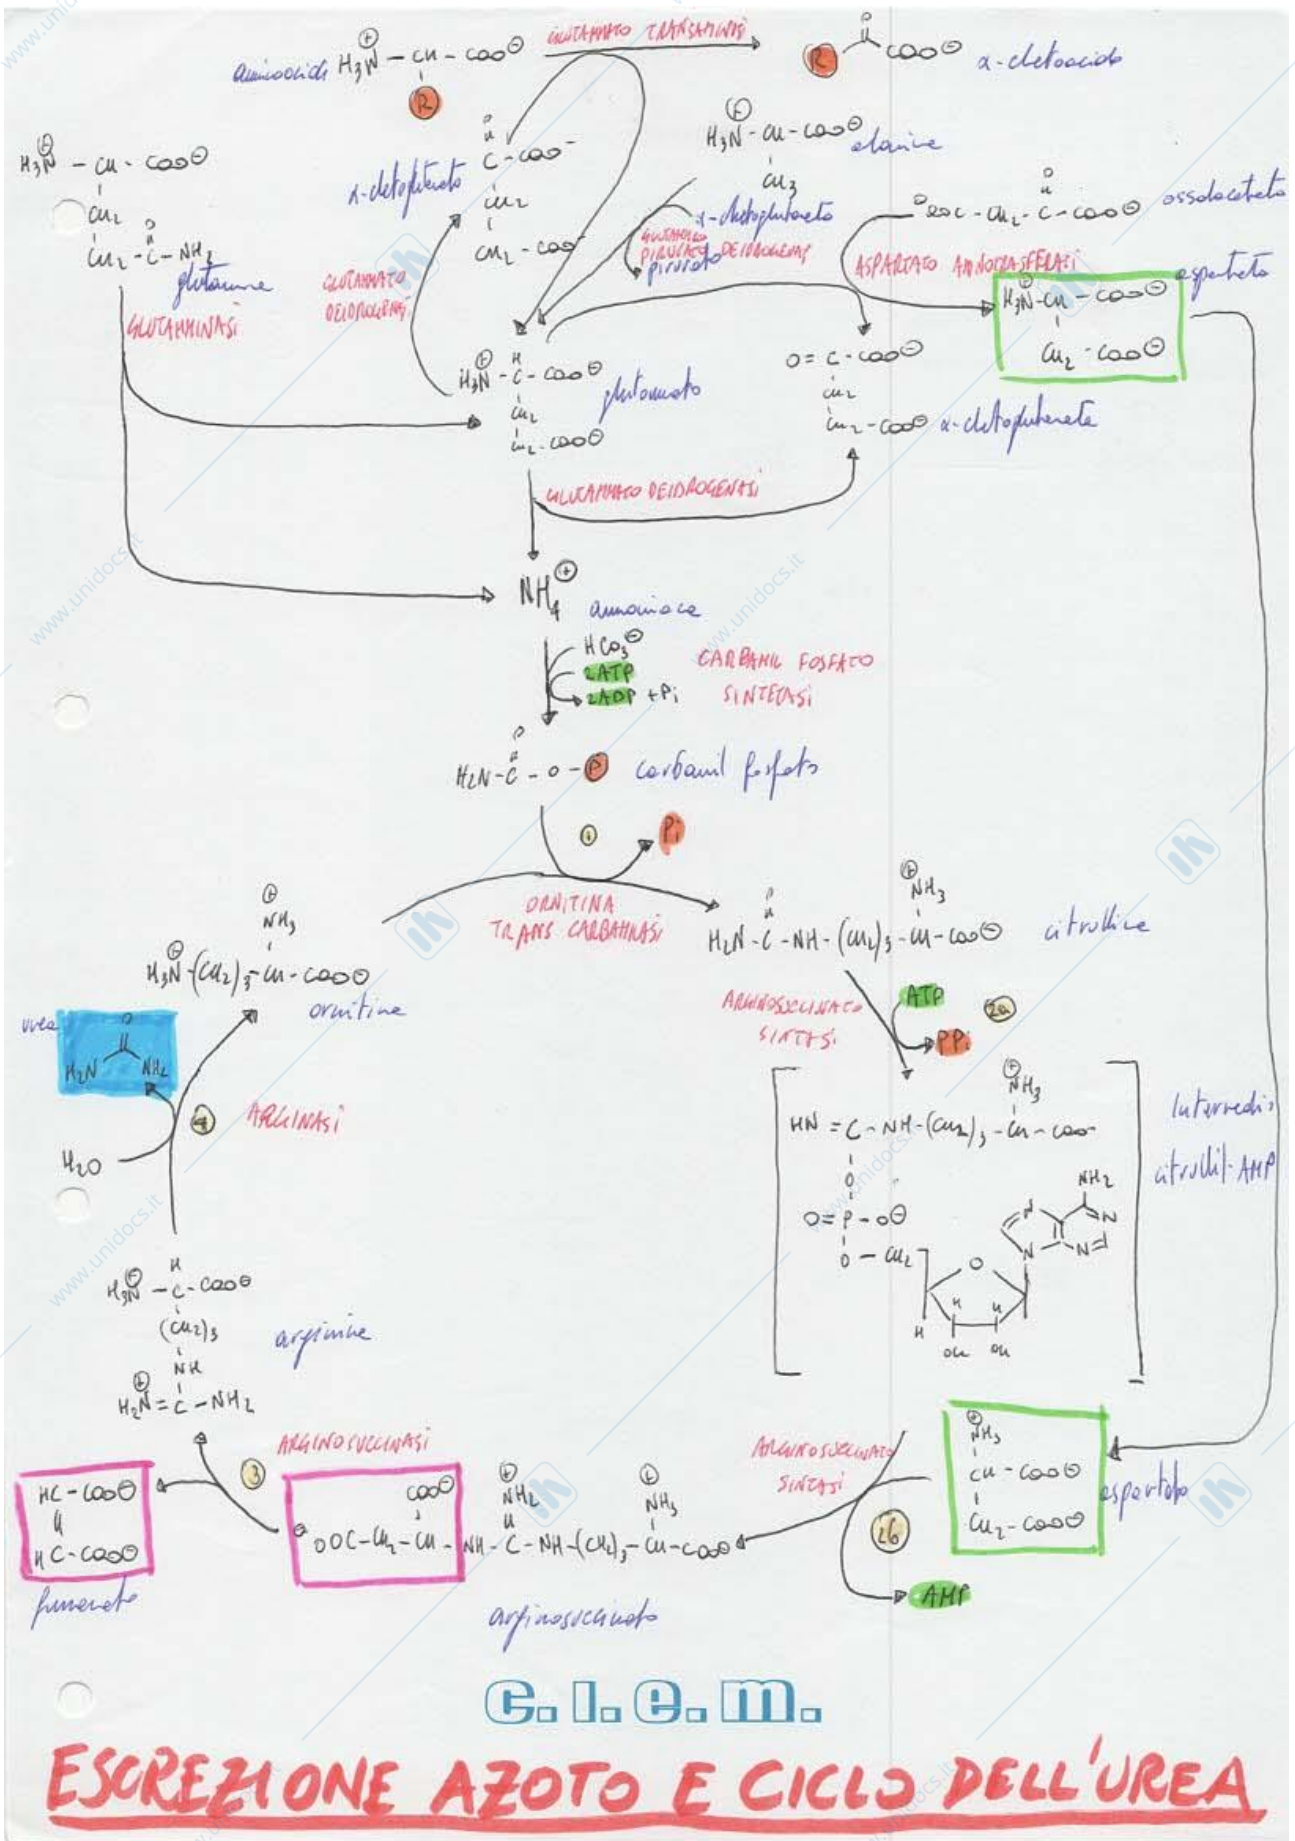 GLUTAMMATO TRANSAMINASI
aminoacidi H₃N⊕ – CH – COO⊖
R
R COO⊖ α-chetoacido
H₃N⊕ – CH – COO⊖
CH₂
O
CH₂ – C – NH₂
glutammina
GLUTAMMINASI
O
C – COO⁻
CH₂
CH₂ – COO⁻
α-chetoglutarato
GLUTAMMATO
DEIDROGENASI
H₃N⊕ – CH – COO⊖ alanina
CH₃
α-chetoglutarato
GLUTAMMATO
PIRUVATO DEIDROGENASI
piruvato
O
⊖OOC – CH₂ – C – COO⊖ ossalacetato
ASPARTATO AMINOTRASFERASI
aspartato
H₃N⊕ – CH – COO⊖
CH₂ – COO⊖
H
H₃N⊕ – C – COO⊖
CH₂
CH₂ – COO⊖
glutammato
O = C – COO⊖
CH₂
CH₂ – COO⊖ α-chetoglutarato
GLUTAMMATO DEIDROGENASI
NH₄⊕
ammoniaca
HCO₃⊖
2ATP
2ADP + Pi
CARBAMIL FOSFATO
SINTETASI
O
H₂N – C – O – P carbamil fosfato
1
Pi
ORNITINA
TRANS CARBAMILASI
⊕
NH₃
H₃N⊕ – (CH₂)₃ – CH – COO⊖
ornitina
O ⊕
NH₃
H₂N – C – NH – (CH₂)₃ – CH – COO⊖ citrullina
ARGINOSUCCINATO
SINTASI
ATP
2a
PPi
urea
O
H₂N NH₂
4
ARGINASI
H₂O
⊕
NH₃
HN = C – NH – (CH₂)₃ – CH – COO⁻
O
O = P – O⊖
O – CH₂
NH₂
N
N
N
N
O
H H
H
OH OH
Intermedio
citrullil-AMP
H
H₃N⊕ – C – COO⊖
(CH₂)₃
NH
H₂N⊕ = C – NH₂
arginina
ARGINOSUCCINASI
3
HC – COO⊖
HC – COO⊖
fumarato
COO⊖
⊖OOC – CH₂ – CH – NH – C – NH – (CH₂)₃ – CH – COO⊖
⊕
NH₂
⊕
NH₃
arginosuccinato
ARGINOSUCCINATO
SINTASI
2b
AMP
⊕
NH₃
CH – COO⊖
CH₂ – COO⊖
aspartato
c.l.e.m.
ESCREZIONE AZOTO E CICLO DELL'UREA
www.unidocs.it
www.unidocs.it
www.unidocs.it
www.unidocs.it